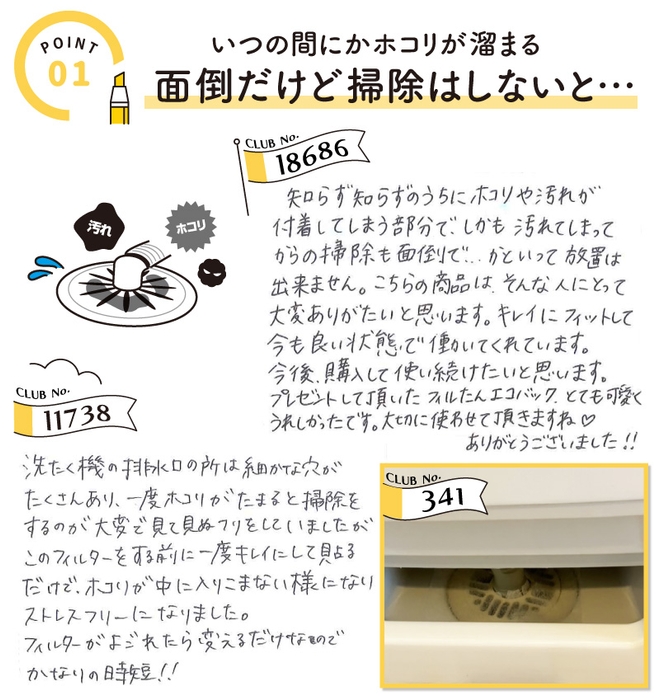 POINT
01
いつの間にかホコリが溜まる
面倒だけど掃除はしないと…
CLUB No.
18686
汚れ
ホコリ
知らず知らずのうちにホコリや汚れが
付着してしまう部分で、しかも汚れてしまって
からの掃除も面倒で、、かといって放置は
出来ません。こちらの商品は、そんな人にとって
大変ありがたいと思います。キレイにフィットして
今も良い状態で働いてくれています。
今後、購入して使い続けたいと思います。
プレゼントして頂いたフィルたんエコバック、とても可愛く
うれしかったです。大切に使わせて頂きますね♡
ありがとうございました!!
CLUB No.
11738
洗たく機の排水口の所は細かな穴が
たくさんあり、一度ホコリがたまると掃除を
するのが大変で見て見ぬフリをしていましたが
このフィルターをする前に一度キレイにして貼る
だけで、ホコリが中に入りこまない様になり
ストレスフリーになりました。
フィルターがよごれたら変えるだけなので
かなりの時短!!
CLUB No.
341